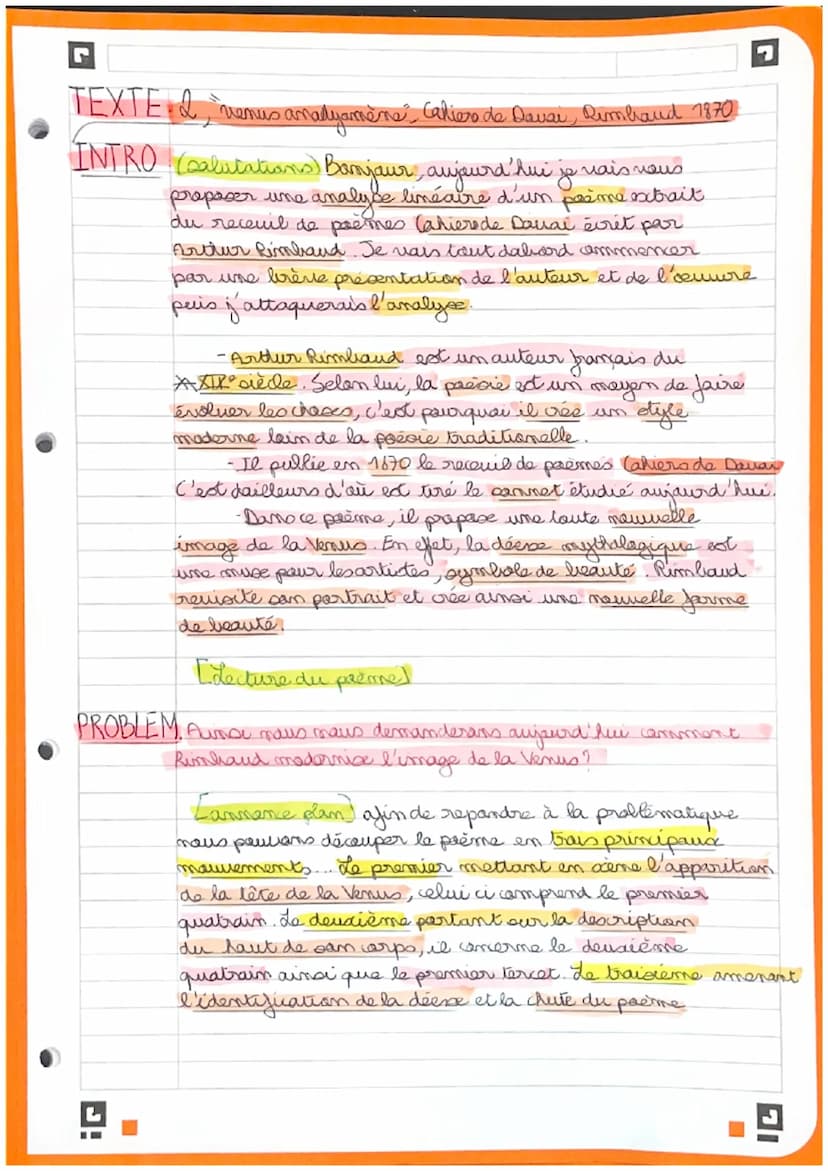 TEXTE : 2, "venus anadyomène", Cahiers de Douai, Rimbaud 1870
INTRO (salutations) Bonjour, aujourd'hui je vais vous
proposer une analyse linéaire d'un poème extrait
du receuil de poèmes Cahiers de Douai écrit par
Arthur Rimbaud. Je vais tout dabord commencer
par une brève présentation de l'auteur et de l'oeuvre
puis j'attaquerais l'analyse.
- Arthur Rimbaud est un auteur français du
XIXe siècle. Selon lui, la poésie est un moyen de faire
évoluer les choses, c'est pourquoi il crée un style
moderne loin de la poésie traditionelle.
- Il publie en 1870 le receuil de poèmes Cahiers de Douai
C'est dailleurs d'où est tiré le sonnet étudié aujourd'hui.
- Dans ce poème, il propose une toute nouvelle
image de la Venus. En effet, la déesse mythologique est
une muse pour les artistes, symbole de beauté. Rimbaud
revisite son portrait et crée ainsi une nouvelle forme
de beauté.
[Lecture du poème]
PROBLEM. Ainsi nous nous demanderons aujourd'hui comment
Rimbaud modernise l'image de la Venus?
[annonce plan] afin de repondre à la problématique
nous pouvons découper le poème en trois principaux
mouvements... Le premier mettant en scène l'apparition
de la tête de la Venus, celui ci comprend le premier
quatrain. Le deuxième portant sur la description
du haut de son corps, il concerne le deuxième
quatrain ainsi que le premier tercet. Le troisième amenant
l'identification de la déesse et la chute du poème